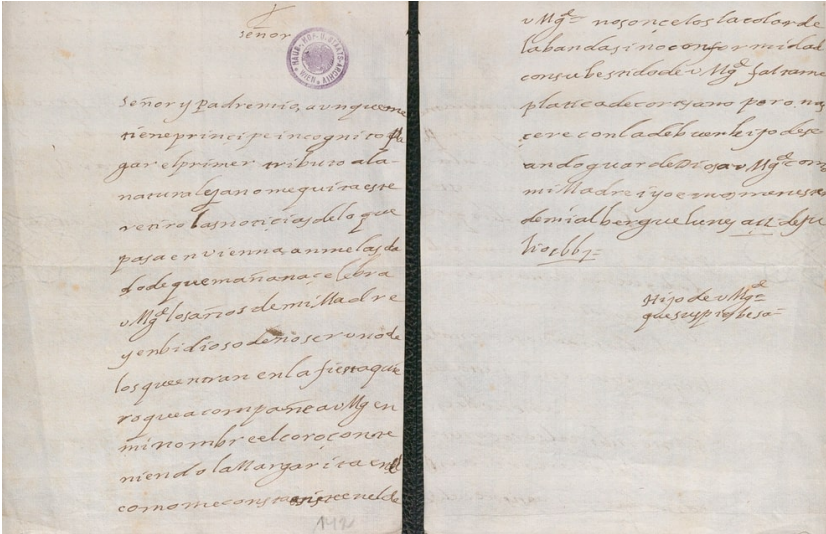 Señor
HAUS-, HOF- U. STAATS-ARCHIV
WIEN
Señor y Padre mio, aunque me
tiene principe incognito pa
gar el primer tributo a la
naturaleza no me quita este
retiro las noticias de lo que
pasa en vienna, an me las da
do de que mañana celebra
v Mgd los años de mi Madre
y enbidioso de no ser uno de
los que entran en la fiesta quie
ro que acompañe a v Mgd en
mi nombre el coro, con te
niendo la Margarita en el
como me consta el de
142
v Mgd no son celos la color de
la banda sino conformidad
con su bestido de v Mgd faltame
platica de cortejano pero na
cere con la de buen hijo dese
ando guarde Dios a v Mgd con
mi Madre i yo e
de mi albergue lunes a 11 de ju
lio 1667
Hijo de v Mgd
que sus pies besa